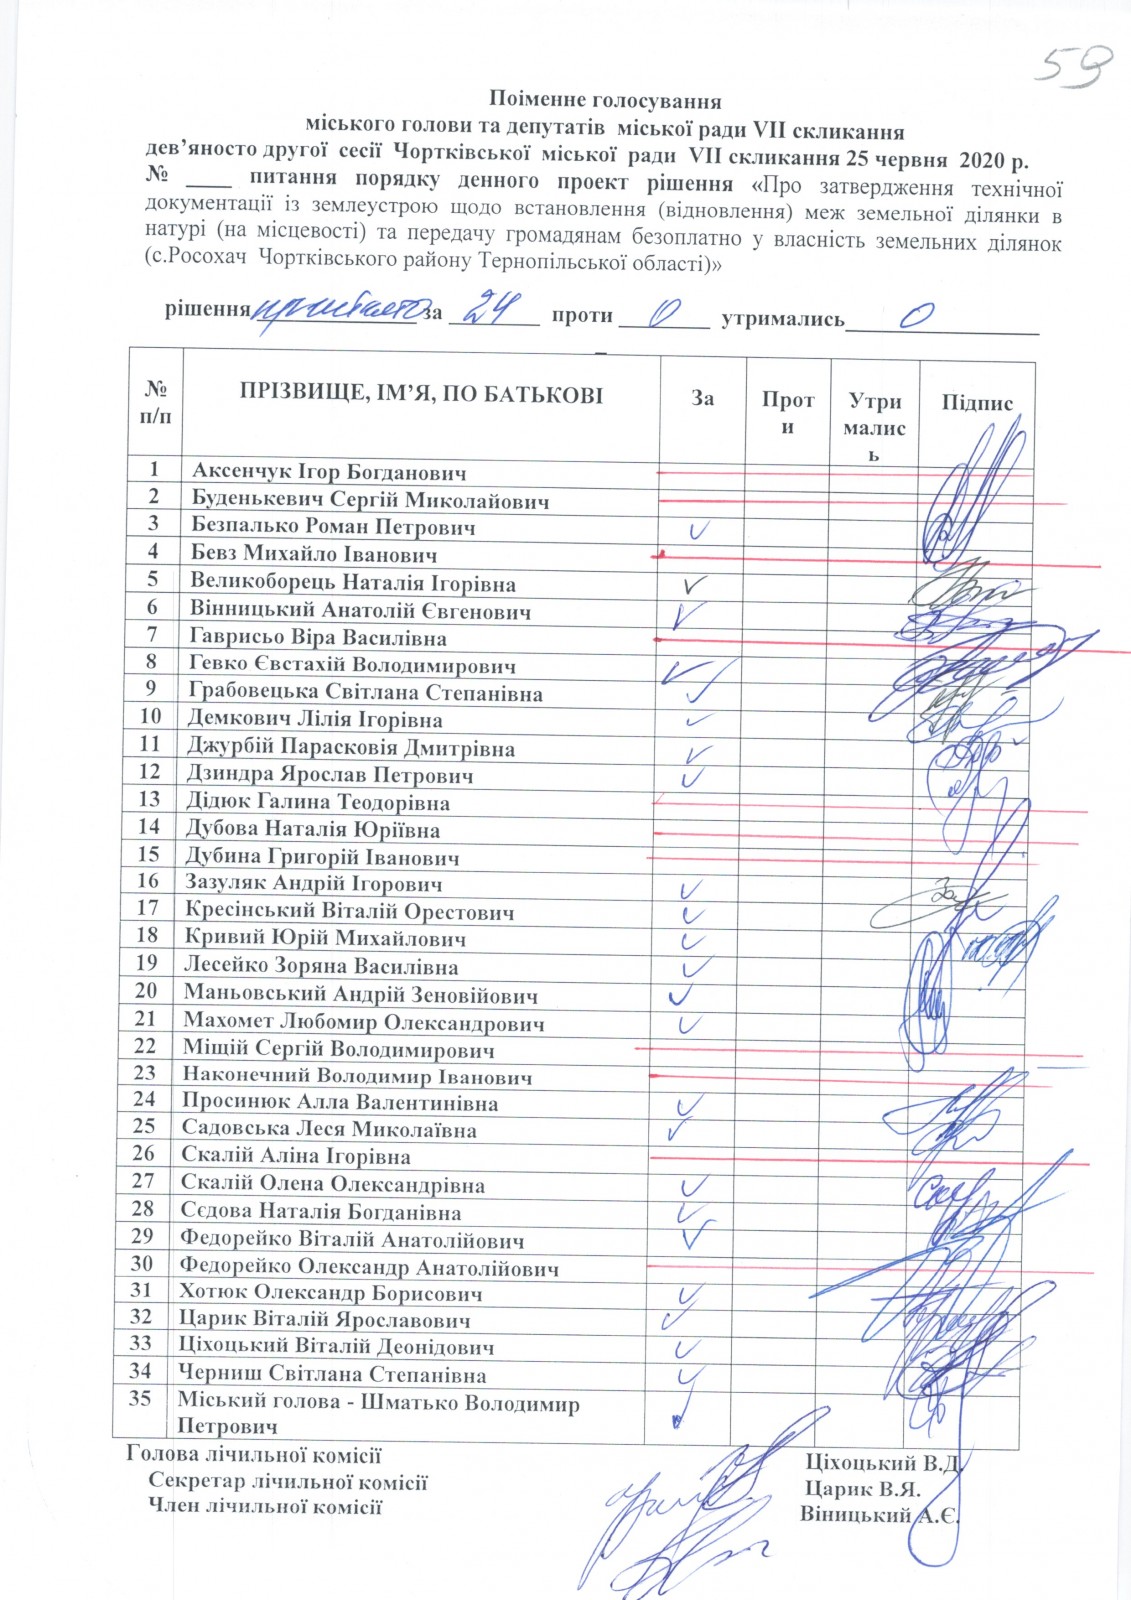 59
Поіменне голосування
міського голови та депутатів міської ради VII скликання
дев’яносто другої сесії Чортківської міської ради VII скликання 25 червня 2020 р.
№ ____ питання порядку денного проект рішення «Про затвердження технічної
документації із землеустрою щодо встановлення (відновлення) меж земельної ділянки в
натурі (на місцевості) та передачу громадянам безоплатно у власність земельних ділянок
(с.Росохач Чортківського району Тернопільської області)»
рішення прийнято за 24 проти 0 утримались 0
№ п/п ПРІЗВИЩЕ, ІМ’Я, ПО БАТЬКОВІ За Прот и Утри малис ь Підпис
1 Аксенчук Ігор Богданович
2 Буденькевич Сергій Миколайович
3 Безпалько Роман Петрович ✓
4 Бевз Михайло Іванович
5 Великоборець Наталія Ігорівна ✓
6 Вінницький Анатолій Євгенович ✓
7 Гаврисьо Віра Василівна
8 Гевко Євстахій Володимирович ✓
9 Грабовецька Світлана Степанівна ✓
10 Демкович Лілія Ігорівна ✓
11 Джурбій Парасковія Дмитрівна ✓
12 Дзиндра Ярослав Петрович ✓
13 Дідюк Галина Теодорівна
14 Дубова Наталія Юріївна
15 Дубина Григорій Іванович
16 Зазуляк Андрій Ігорович ✓
17 Кресінський Віталій Орестович ✓
18 Кривий Юрій Михайлович ✓
19 Лесейко Зоряна Василівна ✓
20 Маньовський Андрій Зеновійович ✓
21 Махомет Любомир Олександрович ✓
22 Міщій Сергій Володимирович
23 Наконечний Володимир Іванович
24 Просинюк Алла Валентинівна ✓
25 Садовська Леся Миколаївна ✓
26 Скалій Аліна Ігорівна
27 Скалій Олена Олександрівна ✓
28 Сєдова Наталія Богданівна ✓
29 Федорейко Віталій Анатолійович ✓
30 Федорейко Олександр Анатолійович
31 Хотюк Олександр Борисович ✓
32 Царик Віталій Ярославович ✓
33 Ціхоцький Віталій Деонідович ✓
34 Черниш Світлана Степанівна ✓
35 Міський голова - Шматько Володимир ✓
Петрович
Голова лічильної комісії Ціхоцький В.Д.
Секретар лічильної комісії Царик В.Я.
Член лічильної комісії Віницький А.Є.